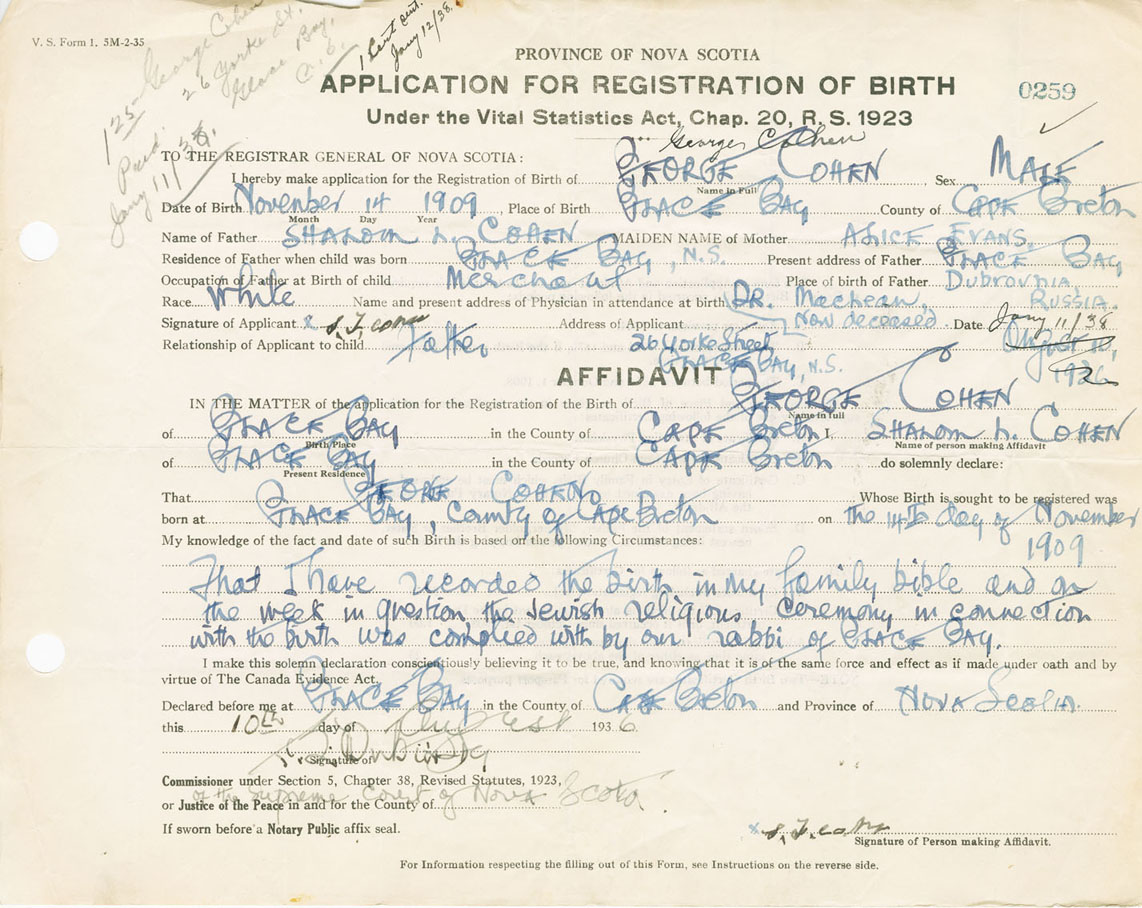 V. S. Form 1. 5M-2-35
George Cohen
26 Yorke St.
Glace Bay,
C. B.
1 Cert sent.
Jany 12/38.
1.25
Paid
Jany 11/38.
PROVINCE OF NOVA SCOTIA
APPLICATION FOR REGISTRATION OF BIRTH
0259
Under the Vital Statistics Act, Chap. 20, R. S. 1923
George Cohen
TO THE REGISTRAR GENERAL OF NOVA SCOTIA:
I hereby make application for the Registration of Birth of GEORGE COHEN Sex MALE
Name in Full
Date of Birth November 14 1909 Place of Birth GLACE BAY County of CAPE Breton
Month Day Year
Name of Father SHALOM L. COHEN MAIDEN NAME of Mother ALICE EVANS,
Residence of Father when child was born GLACE BAY, N.S. Present address of Father GLACE BAY
Occupation of Father at Birth of child Merchant Place of birth of Father Dubrovnia,
Race White Name and present address of Physician in attendance at birth DR. MacLean, RUSSIA.
Now deceased
Signature of Applicant x Address of Applicant Date Jany 11/38
Relationship of Applicant to child Father 26 Yorke Street, August 10,
GLACE BAY, N.S. 1936
AFFIDAVIT
IN THE MATTER of the application for the Registration of the Birth of GEORGE COHEN
Name in full
of GLACE BAY in the County of CAPE Breton I, SHALOM L. COHEN
Birth Place Name of person making Affidavit
of GLACE BAY in the County of CAPE Breton do solemnly declare:
Present Residence
That GEORGE COHEN Whose Birth is sought to be registered was
born at GLACE BAY, County of CAPE Breton on the 14th day of November
1909
My knowledge of the fact and date of such Birth is based on the following Circumstances:
That I have recorded the birth in my family bible and on
the week in question the Jewish religious ceremony in connection
with the birth was complied with by our rabbi of GLACE BAY.
I make this solemn declaration conscientiously believing it to be true, and knowing that it is of the same force and effect as if made under oath and by
virtue of The Canada Evidence Act.
Declared before me at GLACE BAY in the County of CAPE Breton and Province of NOVA Scotia.
this 10th day of August 1936
Signature of
Commissioner under Section 5, Chapter 38, Revised Statutes, 1923,
of the Supreme Court of Nova Scotia
or Justice of the Peace in and for the County of
If sworn before a Notary Public affix seal.
x
Signature of Person making Affidavit.
For Information respecting the filling out of this Form, see Instructions on the reverse side.